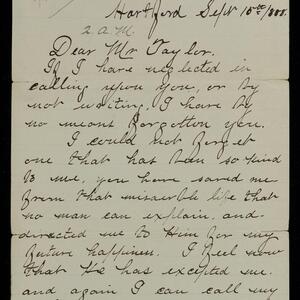 Hartford Sept 15th/
2. A.M.
Dear Mr Taylor.
If I have neglected in
calling upon you, or by
not writing, I have by
no means forgotten you.
I could not forget
one that has ban so kind
to me, you have saved me
from that miserble life that
no man can explain, and
directed me to Him for my
future happiness. I feel now
that He has excepted me.
and again I can call my